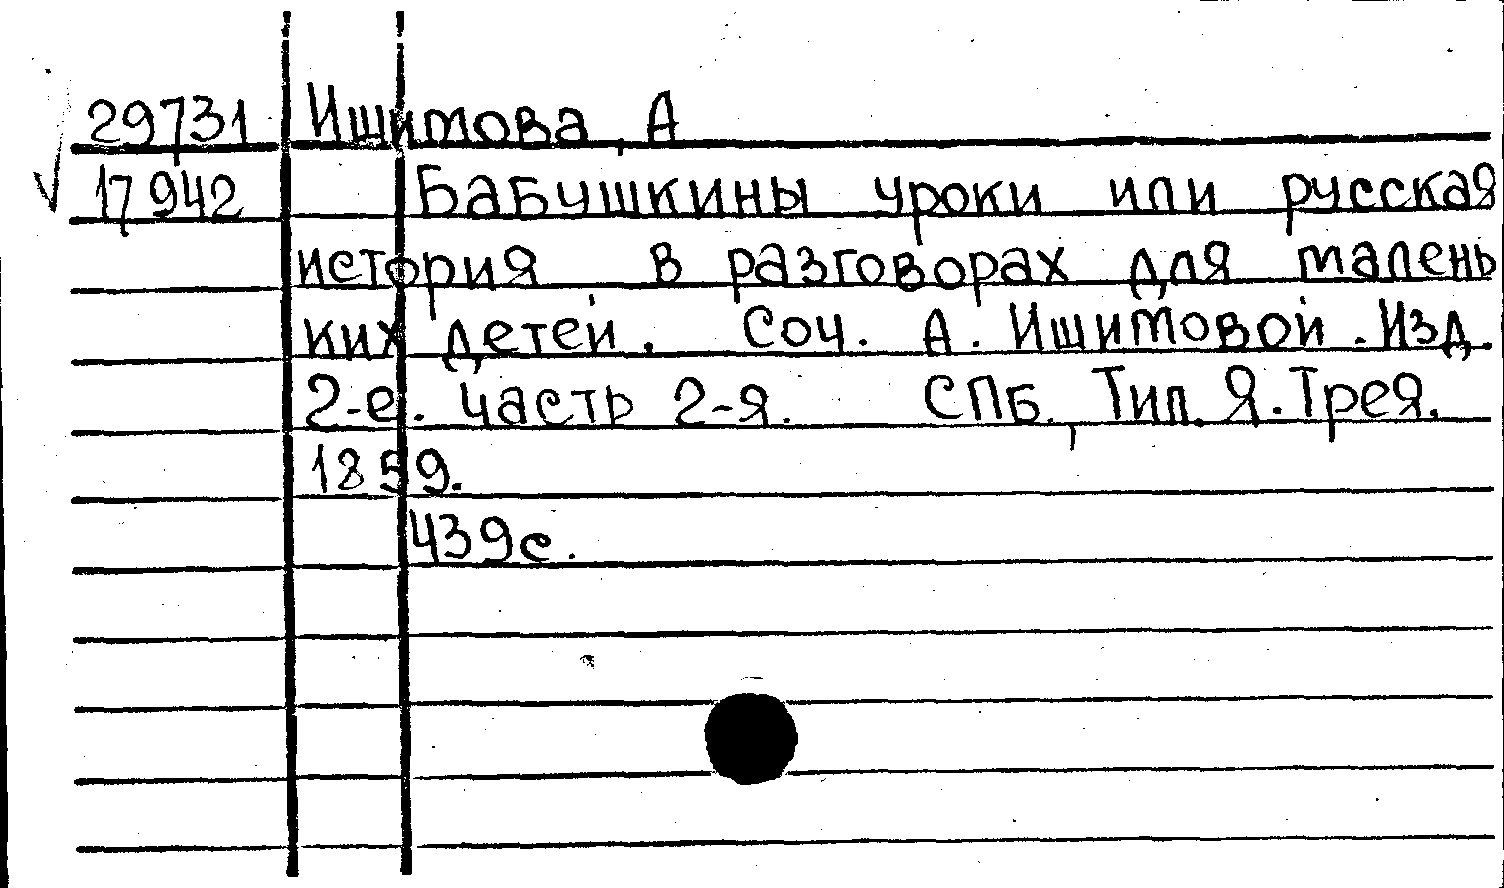 29731 Ишимова, А
17942 Бабушкины уроки или русская
история в разговорах для малень
ких детей. Соч. А. Ишимовой. Изд.
2-е. Часть 2-я. СПб., Тип. Я. Трея.
1859.
439с.